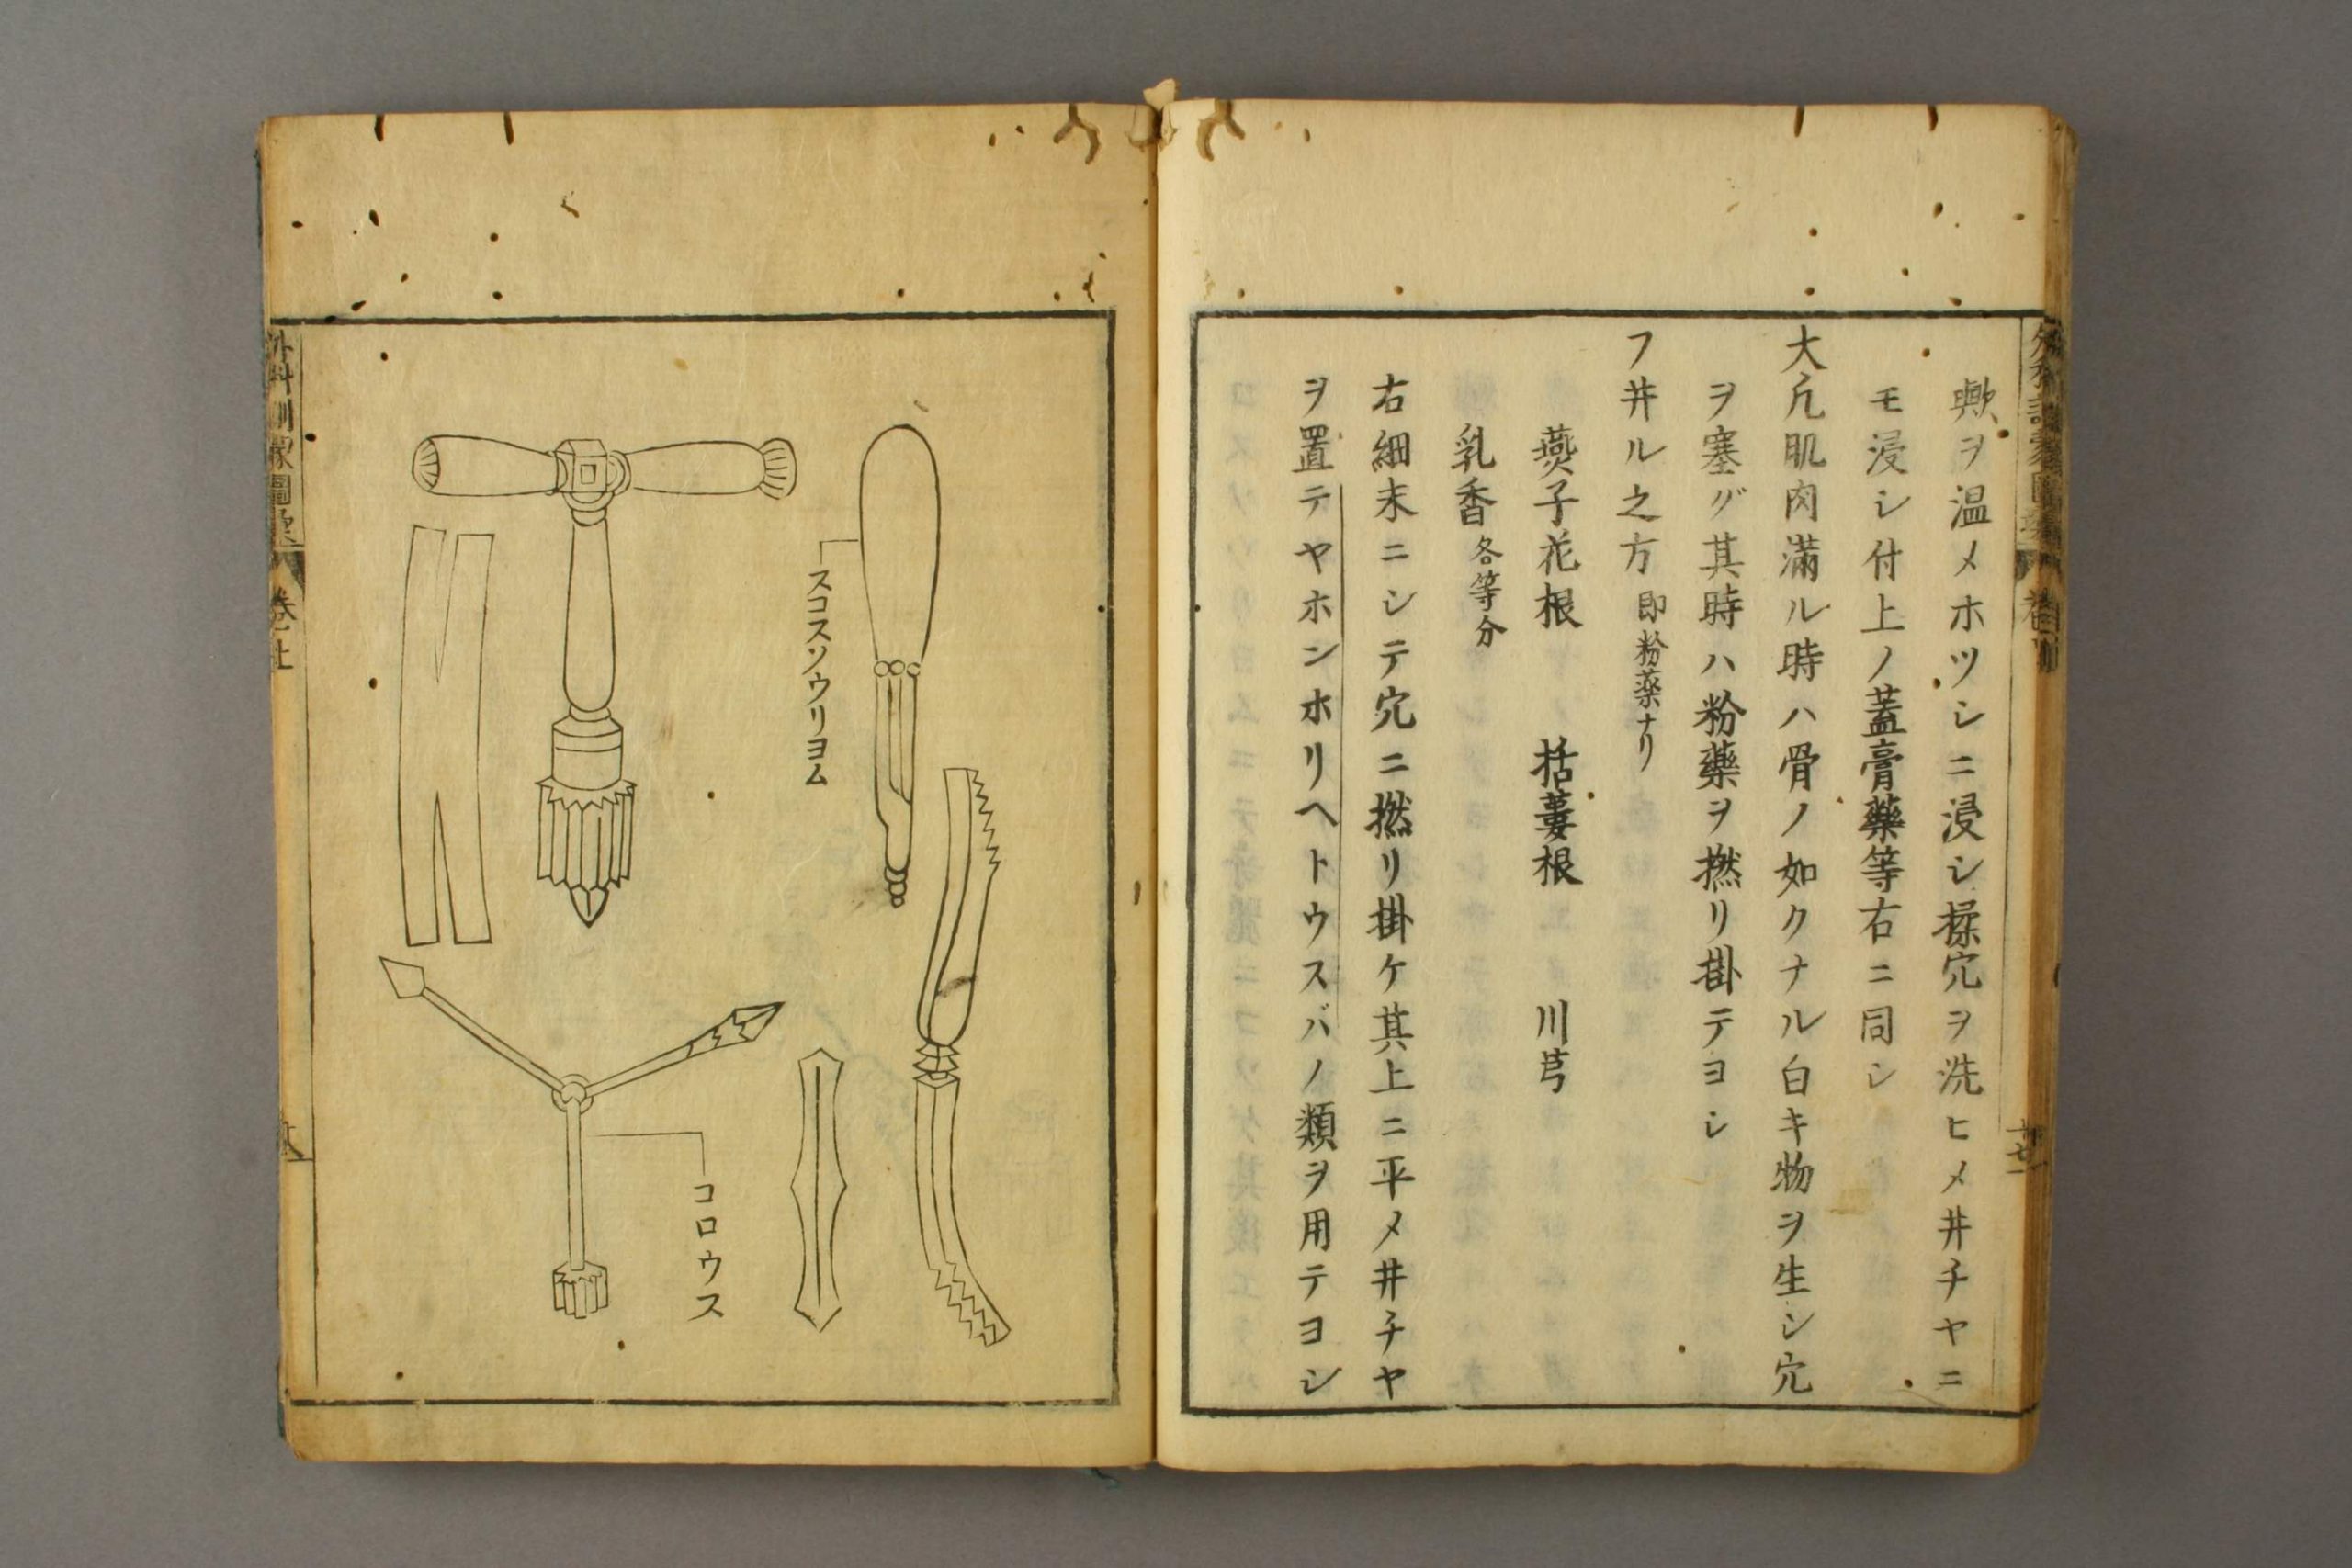 歟ヲ温メホツシニ浸シ揉穴ヲ洗ヒメ井チヤニ
モ浸シ付上ノ蓋膏藥等右ニ同シ
大凢肌肉滿ル時ハ骨ノ如クナル白キ物ヲ生シ穴
ヲ塞グ其時ハ粉藥ヲ撚リ掛テヨシ
フ井ル之方 即粉薬ナリ
燕子花根 括蔞根 川芎
乳香 各等分
右細末ニシテ穴ニ撚リ掛ケ其上ニ平メ井チヤ
ヲ置テヤホンホリヘトウスバノ類ヲ用テヨシ
スコスソウリヨム
コロウス
外科訓蒙圖彙 卷上